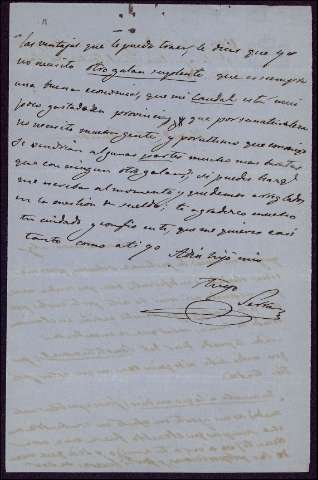 las ventajas que le puedo traer, le dices que ya
no necesito otro galan suplente que es siempre
una buena economia, que mi caudal está mui
poco gastado en provincias, y que
no necesito mucha gente, y por ultimo que conmigo
se vendrian algunas partes mucho mas baratas
que con ningun otro galan; si puedes
me escribes al momento y quedemos arreglados
en la cuestion de sueldo; te agradezco mucho
tu cuidado y confio en ti, que me quieres casi
tanto como a ti yo Adios hijo mio
Tuyo